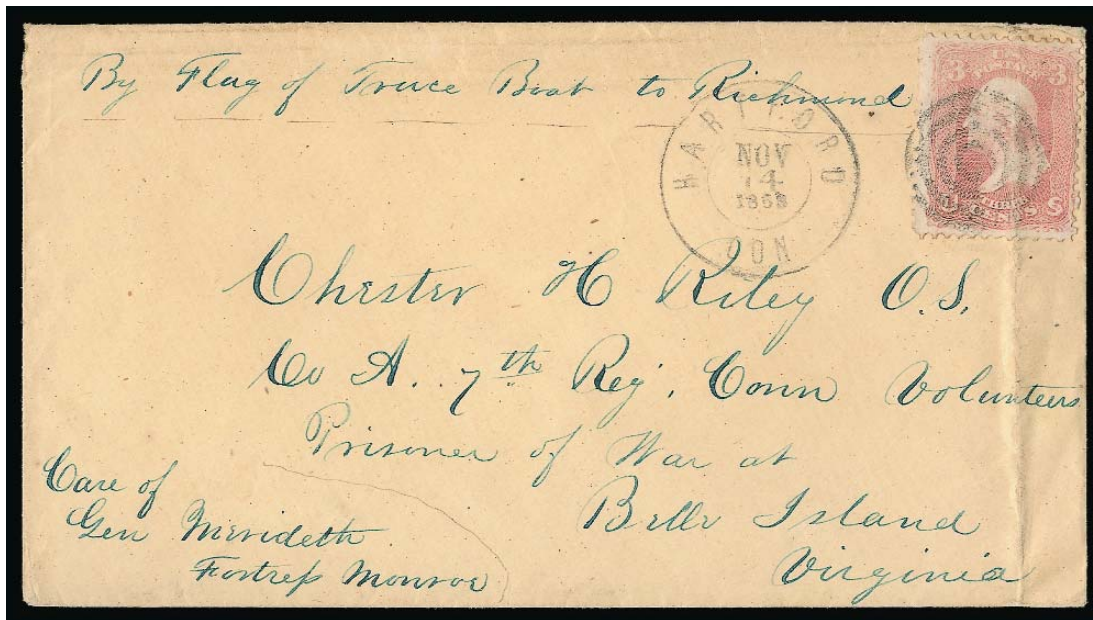 By Flag of Truce Boat to Richmond
HARTFORD
NOV
14
1863
CON
3 3
U.S.
POSTAGE
THREE
CENTS
Chester H Riley O.S.
Co A. 7th Reg. Conn Volunteers
Prisoner of War at
Belle Island
Virginia
Care of
Gen Merideth
Fortress Monroe